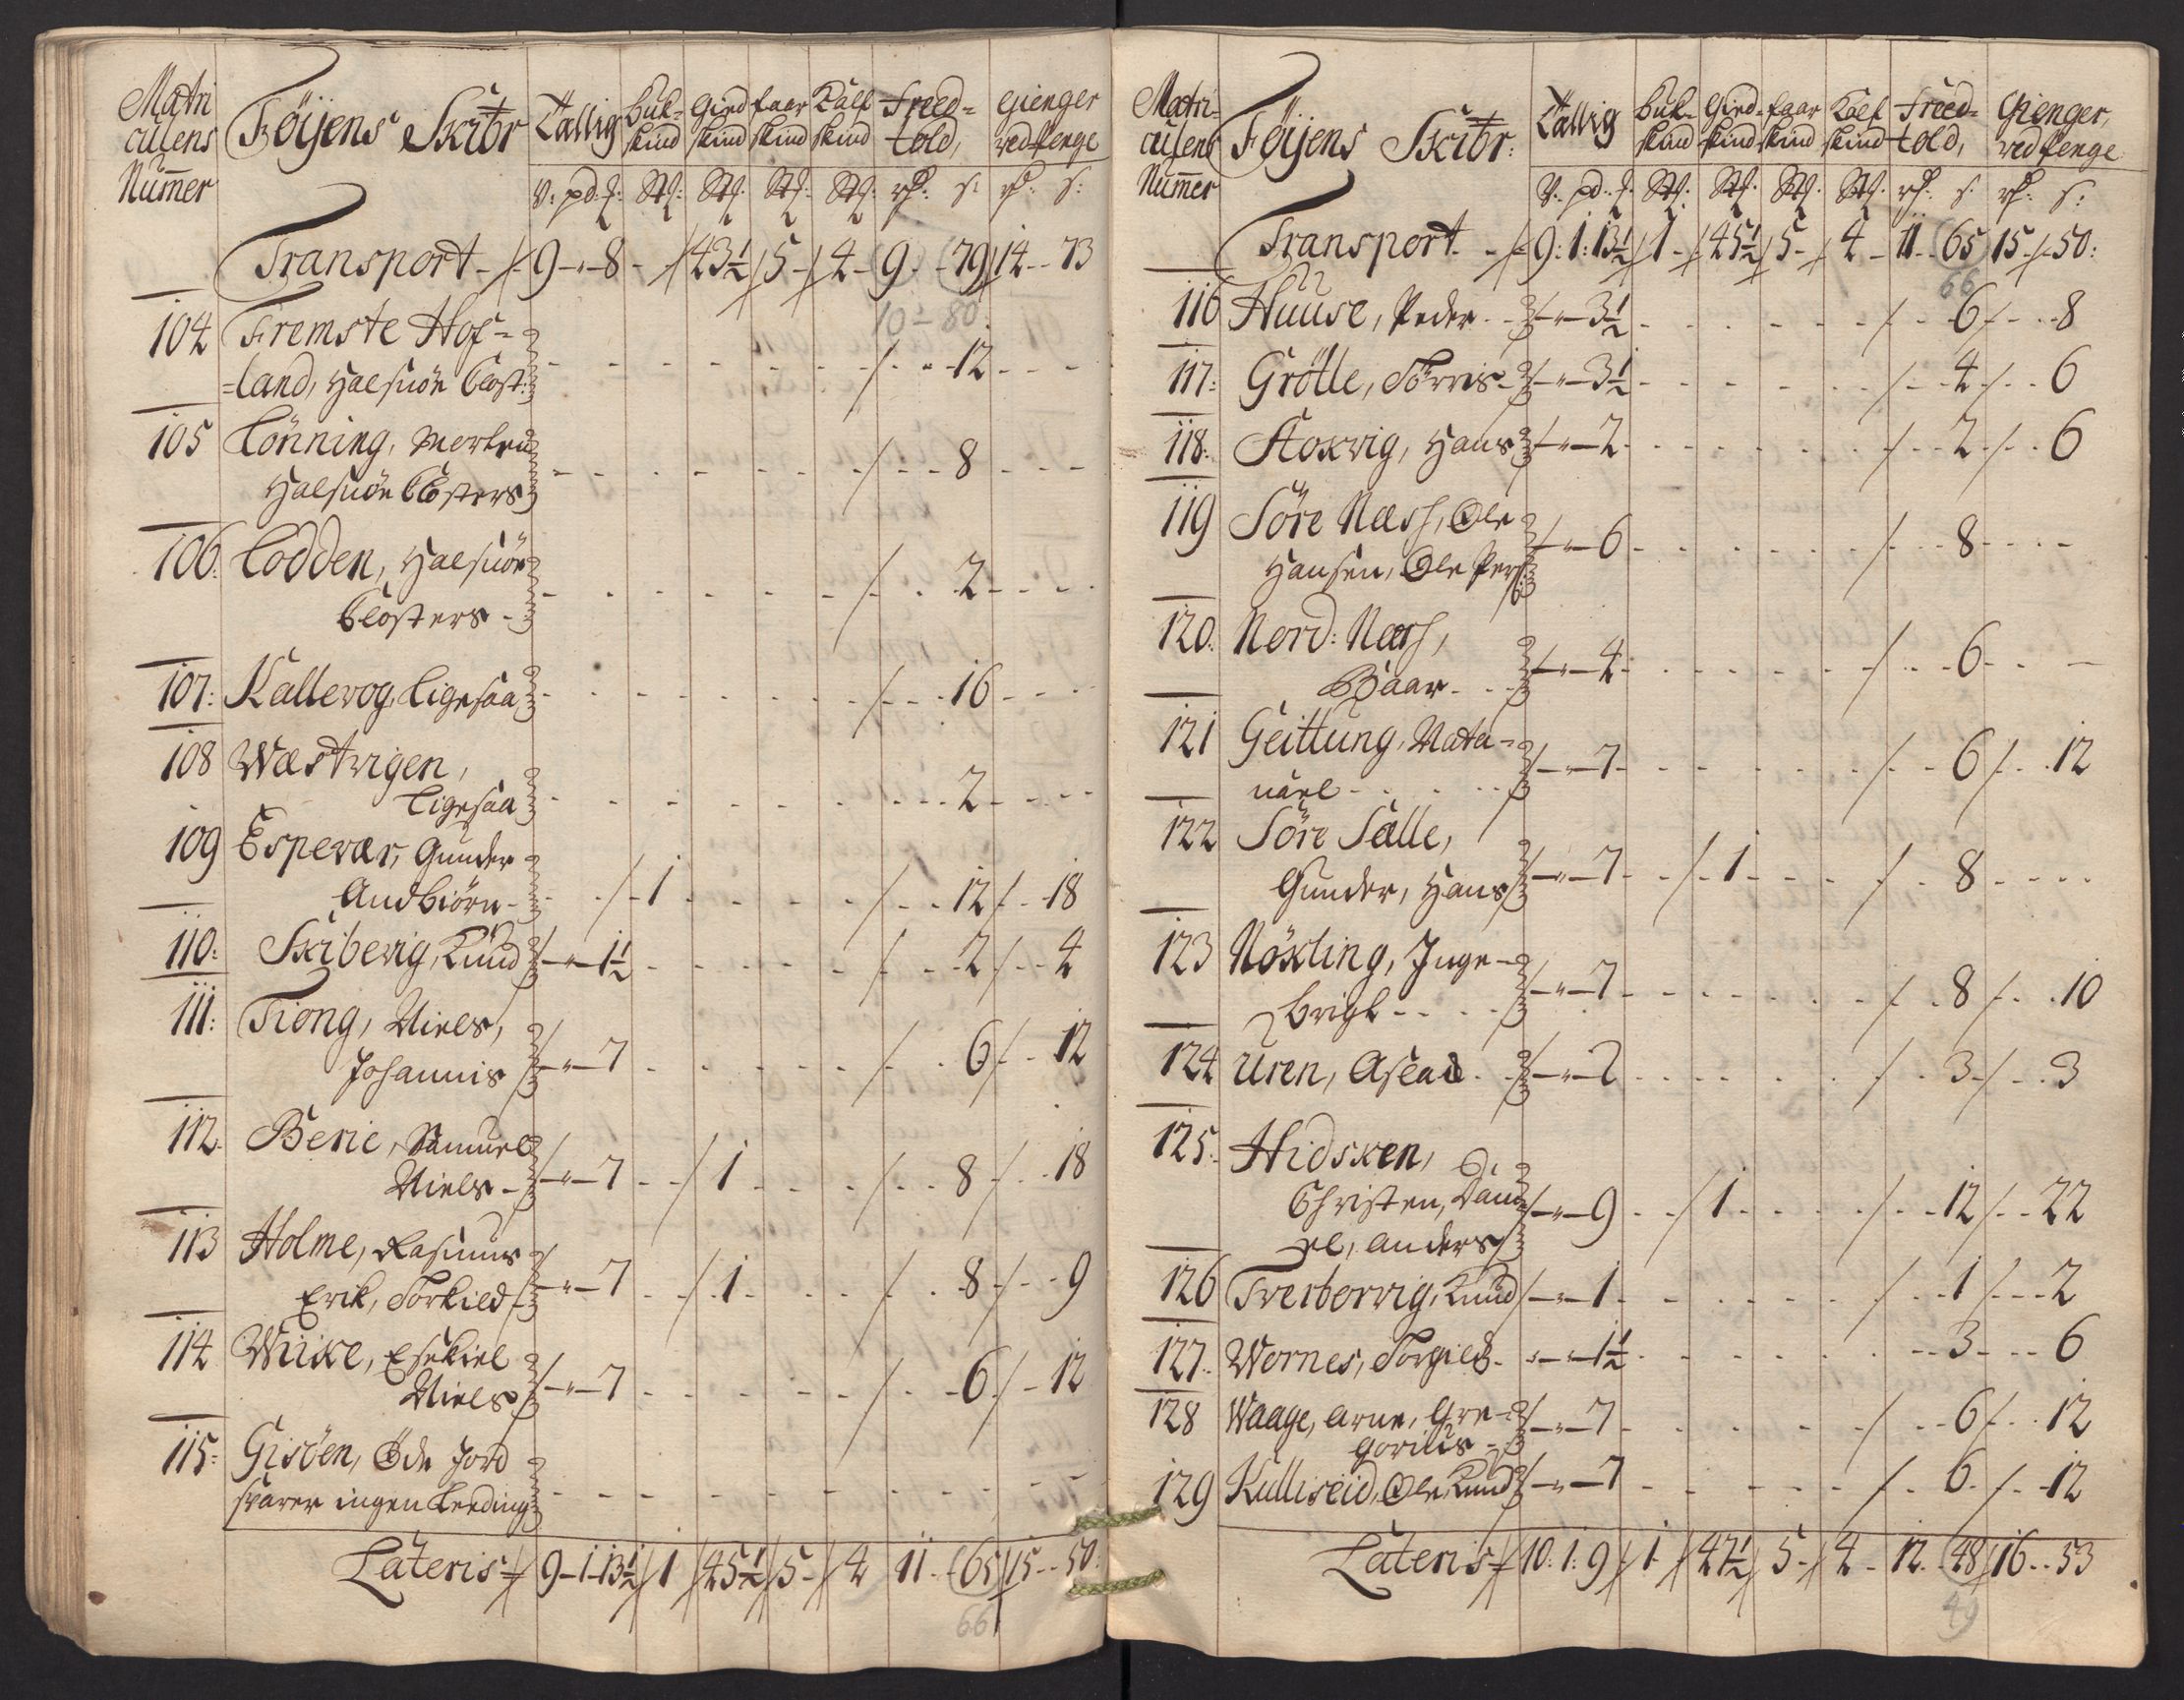 Matri
culens
Nummer
Föijens Skibr
Tallig
Buk=
skind
Gied
skind
faar
skind
Kalf
skind
Freed=
told,
Gienger
ved Penge
V: pd: s: Stk: Stk: Stk: Stk: rd: s: rd: s:
Transport 9 - 8 - 43½ 5 4 9 79 14 73
10 - 80
104 Fremste Hof=
=land, Halsnöe Clost: 12
105 Lönning, Morten
Halsnöe Closters 8
106. Lodden, Halsnöe
Closters 2
107: Kallevog, ligesaa 16
108 Wæstvigen,
ligesaa 2
109 Espevær, Gunder
Andbiörn 1 12 18
110: Skibevig, Knud 1½ 2 4
111: Tiong, Niels,
Johannis 7 6 12
112. Berie, Samuel
Niels 7 1 8 18
113 Holme, Rasmus
Erik, Torkied 7 1 8 9
114 Wiike, Esekiel
Niels 7 6 12
115: Gisöen, Öde Jord
svarer ingen Leeding
Lateris 9 1 13½ 1 45½ 5 4 11 65 15 50
66
Matri-
culens
Nummer
Föijens Skibr:
Tallig
Buk-
skind
Gied-
skind
faar
skind
Kalf
skind
Freed=
told,
Gienger,
ved Penge
V: pd: s: Stk: Stk: Stk: Stk: rd: s: rd: s:
Transport 9: 1: 13½ 1 45½ 5 4 11 65 15 50:
66
116 Huuse, Peder 3½ 6 8
117: Grötle, Torris 3½ 4 6
118: Stoxvig, Hans 2 2 6
119 Söre Næss, Ole
Hansen, Ole Pers: 6 8
120. Nord: Næss,
Baar 4 6
121 Geittung, Nata-
nael 7 6 12
122 Söre Sælle,
Gunder, Hans 7 1 8
123 Nöxling, Inge-
brigt 7 8 10
124 Uren, Aslak 2 3 3
125. Hidsken,
Christen, Dani
el, Anders 9 1 12 22
126 Tverborvig, Knud 1 1 2
127. Wornes, Torgied 1½ 3 6
128 Waage, Arne, Gre-
gorius 7 6 12
129 Kulliseid, Ole, Knud 7 6 12
Lateris 10: 1: 9 1 47½ 5 4 12 48 16 53
49